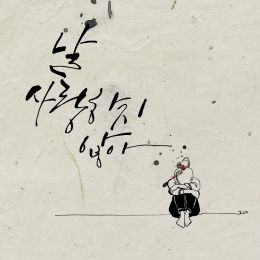 날
사랑하지
않아